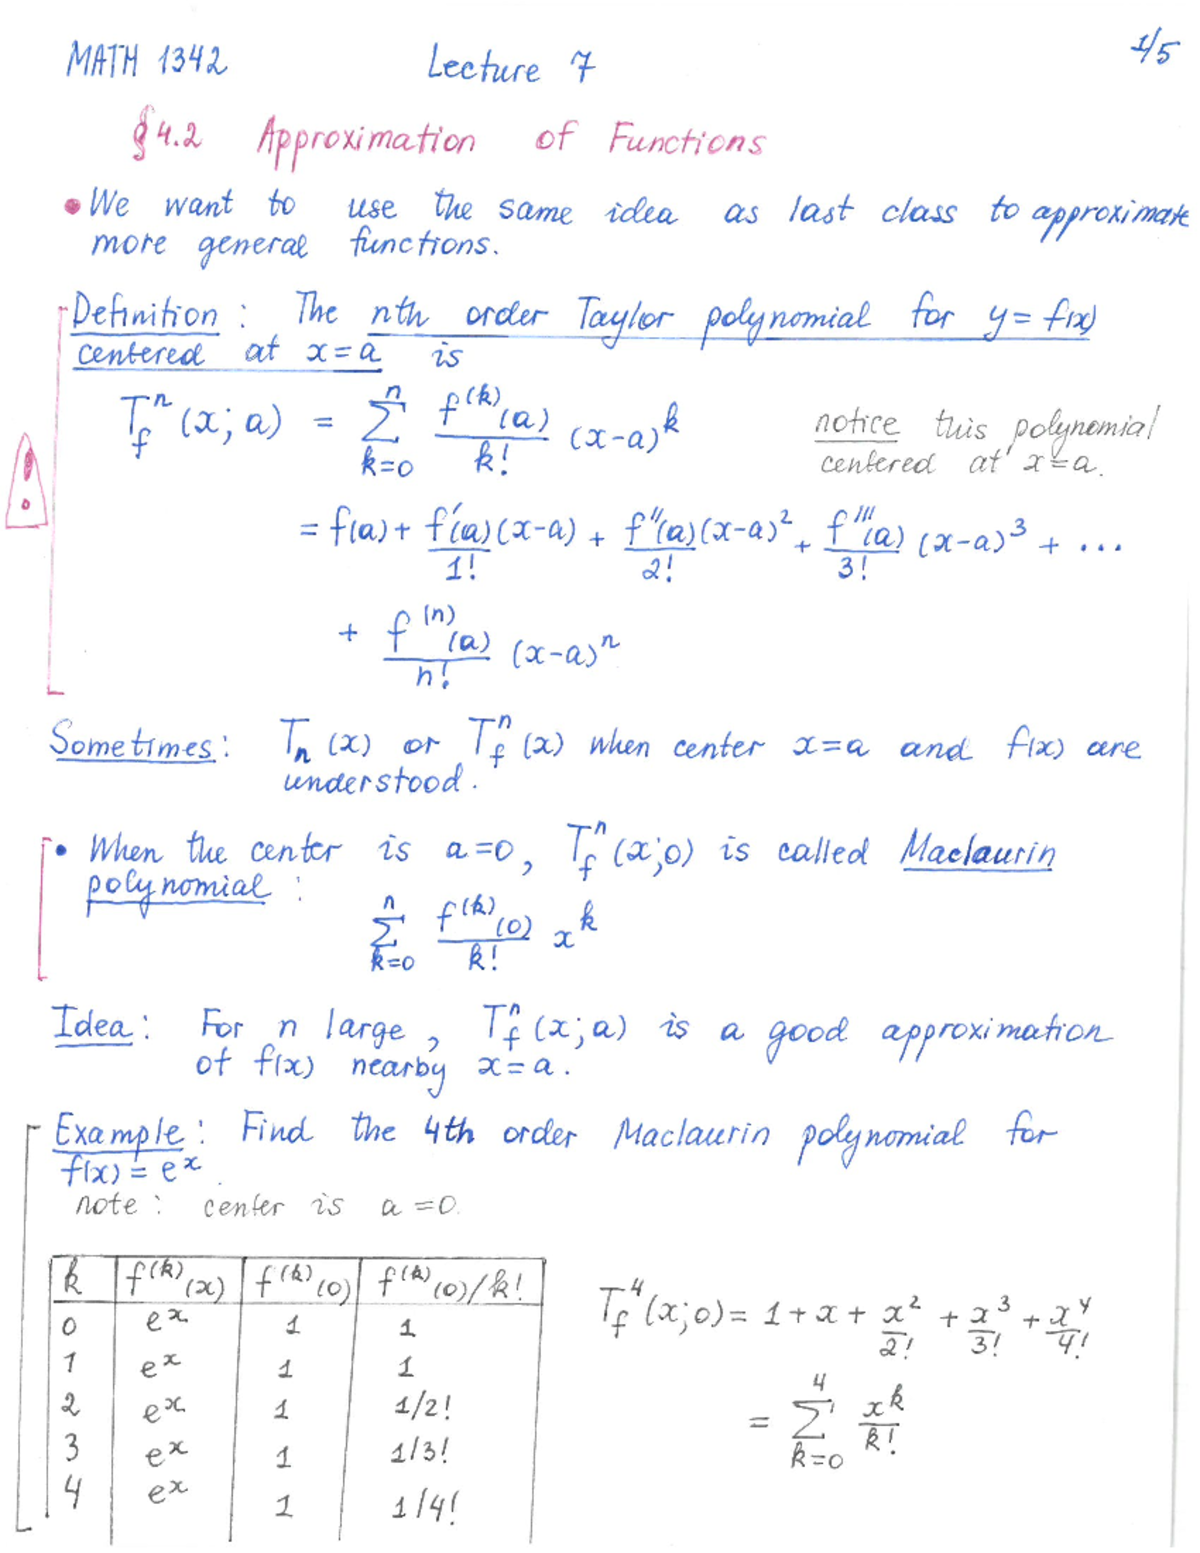 MATH 1342 Lecture 7 1/5
§4.2 Approximation of Functions
• We want to use the same idea as last class to approximate
more general functions.
Definition: The nth order Taylor polynomial for y = f(x)
centered at x=a is
T_f^n (x; a) = Σ_{k=0}^{n} f^(k)(a)/k! (x-a)^k
notice this polynomial
centered at x=a.
= f(a) + f'(a)/1! (x-a) + f''(a)/2! (x-a)^2 + f'''(a)/3! (x-a)^3 + ...
+ f^(n)(a)/n! (x-a)^n
!
Sometimes: T_n (x) or T_f^n (x) when center x=a and f(x) are
understood.
• When the center is a=0, T_f^n (x;0) is called Maclaurin
polynomial:
Σ_{k=0}^{n} f^(k)(0)/k! x^k
Idea: For n large, T_f^n (x; a) is a good approximation
of f(x) nearby x=a.
Example: Find the 4th order Maclaurin polynomial for
f(x) = e^x.
note: center is a=0.
k f^(k)(x) f^(k)(0) f^(k)(0)/k!
0 e^x 1 1
1 e^x 1 1
2 e^x 1 1/2!
3 e^x 1 1/3!
4 e^x 1 1/4!
T_f^4 (x;0) = 1 + x + x^2/2! + x^3/3! + x^4/4!
= Σ_{k=0}^{4} x^k/k!